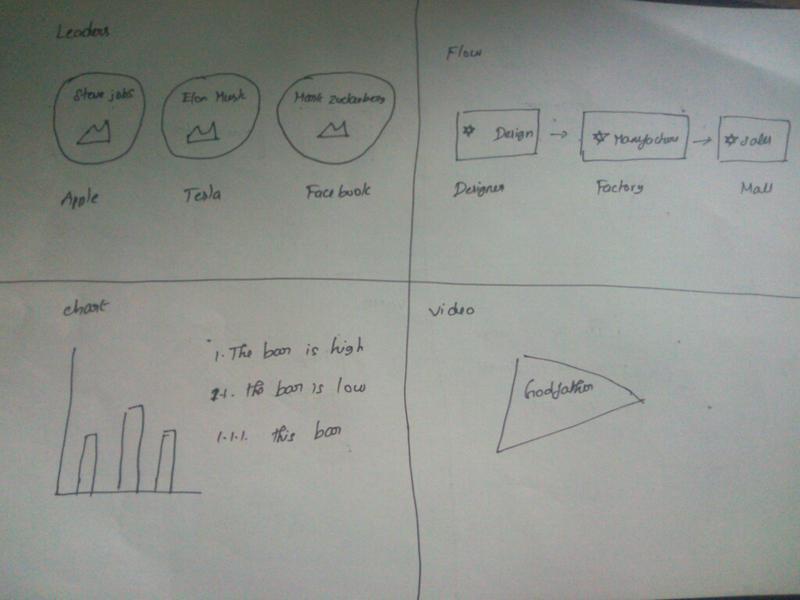 Leaders
Steve jobs
Elon Musk
Mark Zuckerberg
Apple
Tesla
Facebook
Flow
Design → Manufacture → Sales
Designer
Factory
Mall
chart
1. The bar is high
1.1. the bar is low
1.1.1. this bar
video
Godfather